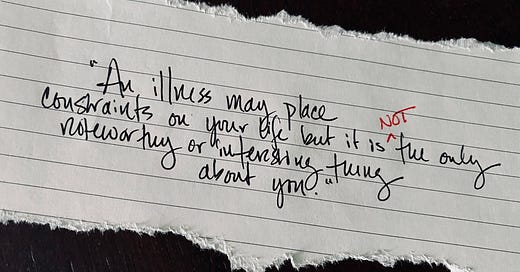 "An illness may place
constraints on your life but it is NOT the only
noteworthy or interesting thing
about you."